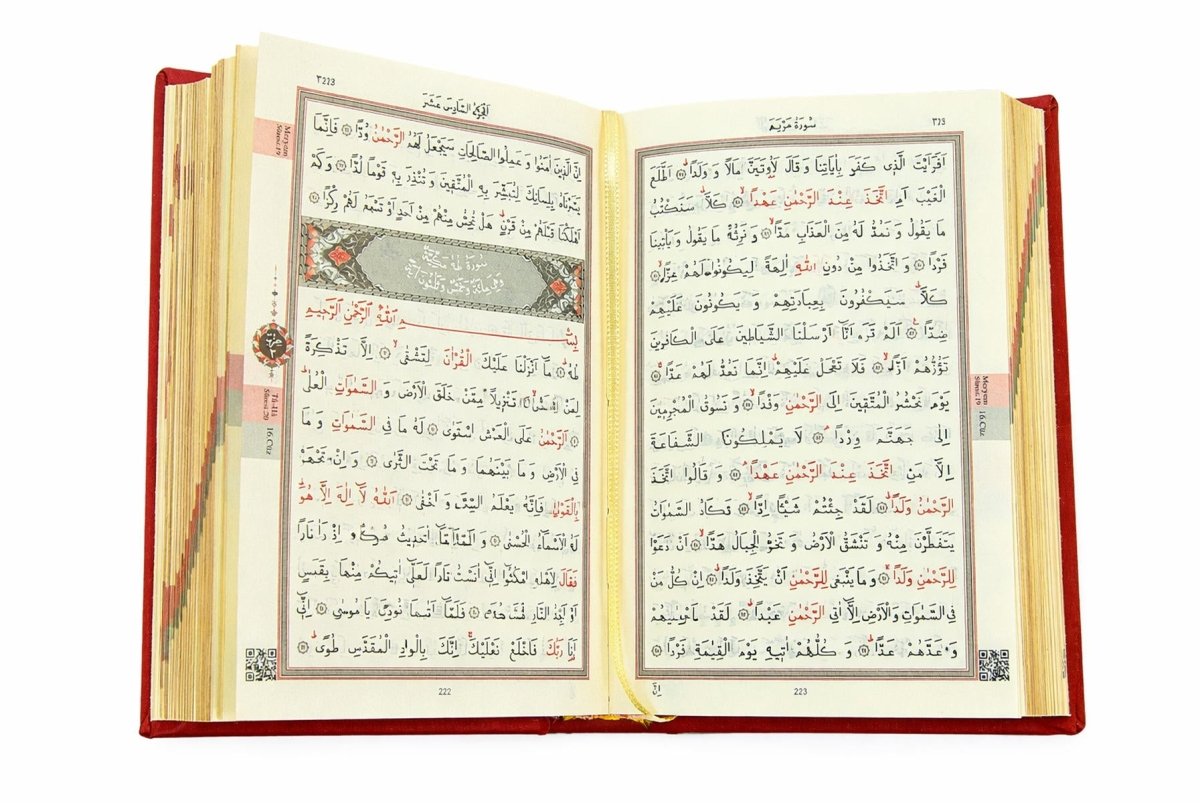 سُورَةُ مَرْيَمَ
اَفَرَاَيْتَ الَّذٖى كَفَرَ بِاٰيَاتِنَا وَ قَالَ لَاُوتَيَنَّ مَالًا وَ وَلَدًا اَطَّلَعَ
الْغَيْبَ اَمِ اتَّخَذَ عِنْدَ الرَّحْمٰنِ عَهْدًا كَلَّا سَنَكْتُبُ
مَا يَقُولُ وَ نَمُدُّ لَهُ مِنَ الْعَذَابِ مَدًّا وَ نَرِثُهُ مَا يَقُولُ وَ يَأْتٖينَا
فَرْدًا وَ اتَّخَذُوا مِنْ دُونِ اللّٰهِ اٰلِهَةً لِيَكُونُوا لَهُمْ عِزًّا
كَلَّا سَيَكْفُرُونَ بِعِبَادَتِهِمْ وَ يَكُونُونَ عَلَيْهِمْ
ضِدًّا اَلَمْ تَرَ اَنَّا اَرْسَلْنَا الشَّيَاطٖينَ عَلَى الْكَافِرٖينَ
تَؤُزُّهُمْ اَزًّا فَلَا تَعْجَلْ عَلَيْهِمْ اِنَّمَا نَعُدُّ لَهُمْ عَدًّا
يَوْمَ نَحْشُرُ الْمُتَّقٖينَ اِلَى الرَّحْمٰنِ وَفْدًا وَ نَسُوقُ الْمُجْرِمٖينَ
اِلٰى جَهَنَّمَ وِرْدًا لَا يَمْلِكُونَ الشَّفَاعَةَ
اِلَّا مَنِ اتَّخَذَ عِنْدَ الرَّحْمٰنِ عَهْدًا وَ قَالُوا اتَّخَذَ
الرَّحْمٰنُ وَلَدًا لَقَدْ جِئْتُمْ شَيْـًٔا اِدًّا تَكَادُ السَّمٰوَاتُ
يَتَفَطَّرْنَ مِنْهُ وَ تَنْشَقُّ الْاَرْضُ وَ تَخِرُّ الْجِبَالُ هَدًّا اَنْ دَعَوْا
لِلرَّحْمٰنِ وَلَدًا وَ مَا يَنْبَغٖى لِلرَّحْمٰنِ اَنْ يَتَّخِذَ وَلَدًا اِنْ كُلُّ مَنْ
فِى السَّمٰوَاتِ وَ الْاَرْضِ اِلَّا اٰتِى الرَّحْمٰنِ عَبْدًا لَقَدْ اَحْصٰيهُمْ
وَ عَدَّهُمْ عَدًّا وَ كُلُّهُمْ اٰتٖيهِ يَوْمَ الْقِيٰمَةِ فَرْدًا
اِنَّ
223
Meryem
Sûresi:19
16.Cüz
اَلْجُزْءُ السَّادِسَ عَشَرَ
اِنَّ الَّذٖينَ اٰمَنُوا وَ عَمِلُوا الصَّالِحَاتِ سَيَجْعَلُ لَهُمُ الرَّحْمٰنُ وُدًّا فَاِنَّمَا
يَسَّرْنَاهُ بِلِسَانِكَ لِتُبَشِّرَ بِهِ الْمُتَّقٖينَ وَ تُنْذِرَ بِهٖ قَوْمًا لُدًّا وَ كَمْ
اَهْلَكْنَا قَبْلَهُمْ مِنْ قَرْنٍ هَلْ تُحِسُّ مِنْهُمْ مِنْ اَحَدٍ اَوْ تَسْمَعُ لَهُمْ رِكْزًا
سُورَةُ طٰهٰ مَكِّيَّةٌ
بِسْمِ اللّٰهِ الرَّحْمٰنِ الرَّحٖيمِ
طٰهٰ مَا اَنْزَلْنَا عَلَيْكَ الْقُرْاٰنَ لِتَشْقٰى اِلَّا تَذْكِرَةً
لِمَنْ تَنْزٖيلًا مِمَّنْ خَلَقَ الْاَرْضَ وَ السَّمٰوَاتِ الْعُلٰى
اَلرَّحْمٰنُ عَلَى الْعَرْشِ اسْتَوٰى لَهُ مَا فِى السَّمٰوَاتِ وَ مَا
فِى الْاَرْضِ وَ مَا بَيْنَهُمَا وَ مَا تَحْتَ الثَّرٰى وَ اِنْ تَجْهَرْ
بِالْقَوْلِ فَاِنَّهُ يَعْلَمُ السِّرَّ وَ اَخْفٰى اَللّٰهُ لَا اِلٰهَ اِلَّا هُوَ
لَهُ الْاَسْمَاءُ الْحُسْنٰى اِذْ رَاٰ نَارًا
فَقَالَ لِاَهْلِهِ امْكُثُوا اِنّٖى اٰنَسْتُ نَارًا لَعَلّٖى اٰتٖيكُمْ مِنْهَا بِقَبَسٍ
اَوْ اَجِدُ النَّارِ فَلَمَّا نُودِىَ يَا مُوسٰى اِنّٖى
اَنَا رَبُّكَ فَاخْلَعْ نَعْلَيْكَ اِنَّكَ بِالْوَادِ الْمُقَدَّسِ طُوًى
222
Meryem
Sûresi:19
Tâ-Hâ
Sûresi:20
16.Cüz